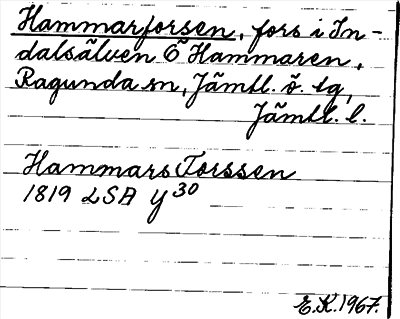 Hammarforsen, fors i In-
dalsälven Ö Hammaren,
Ragunda sn, Jämtl. ö. tg,
Jämtl. l.
Hammars Forssen
1819 LSA Y 30
E.K. 1967.